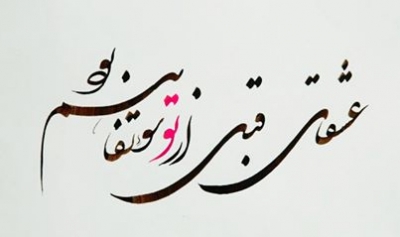 عشقای قبل از تو سوتفاهم بود